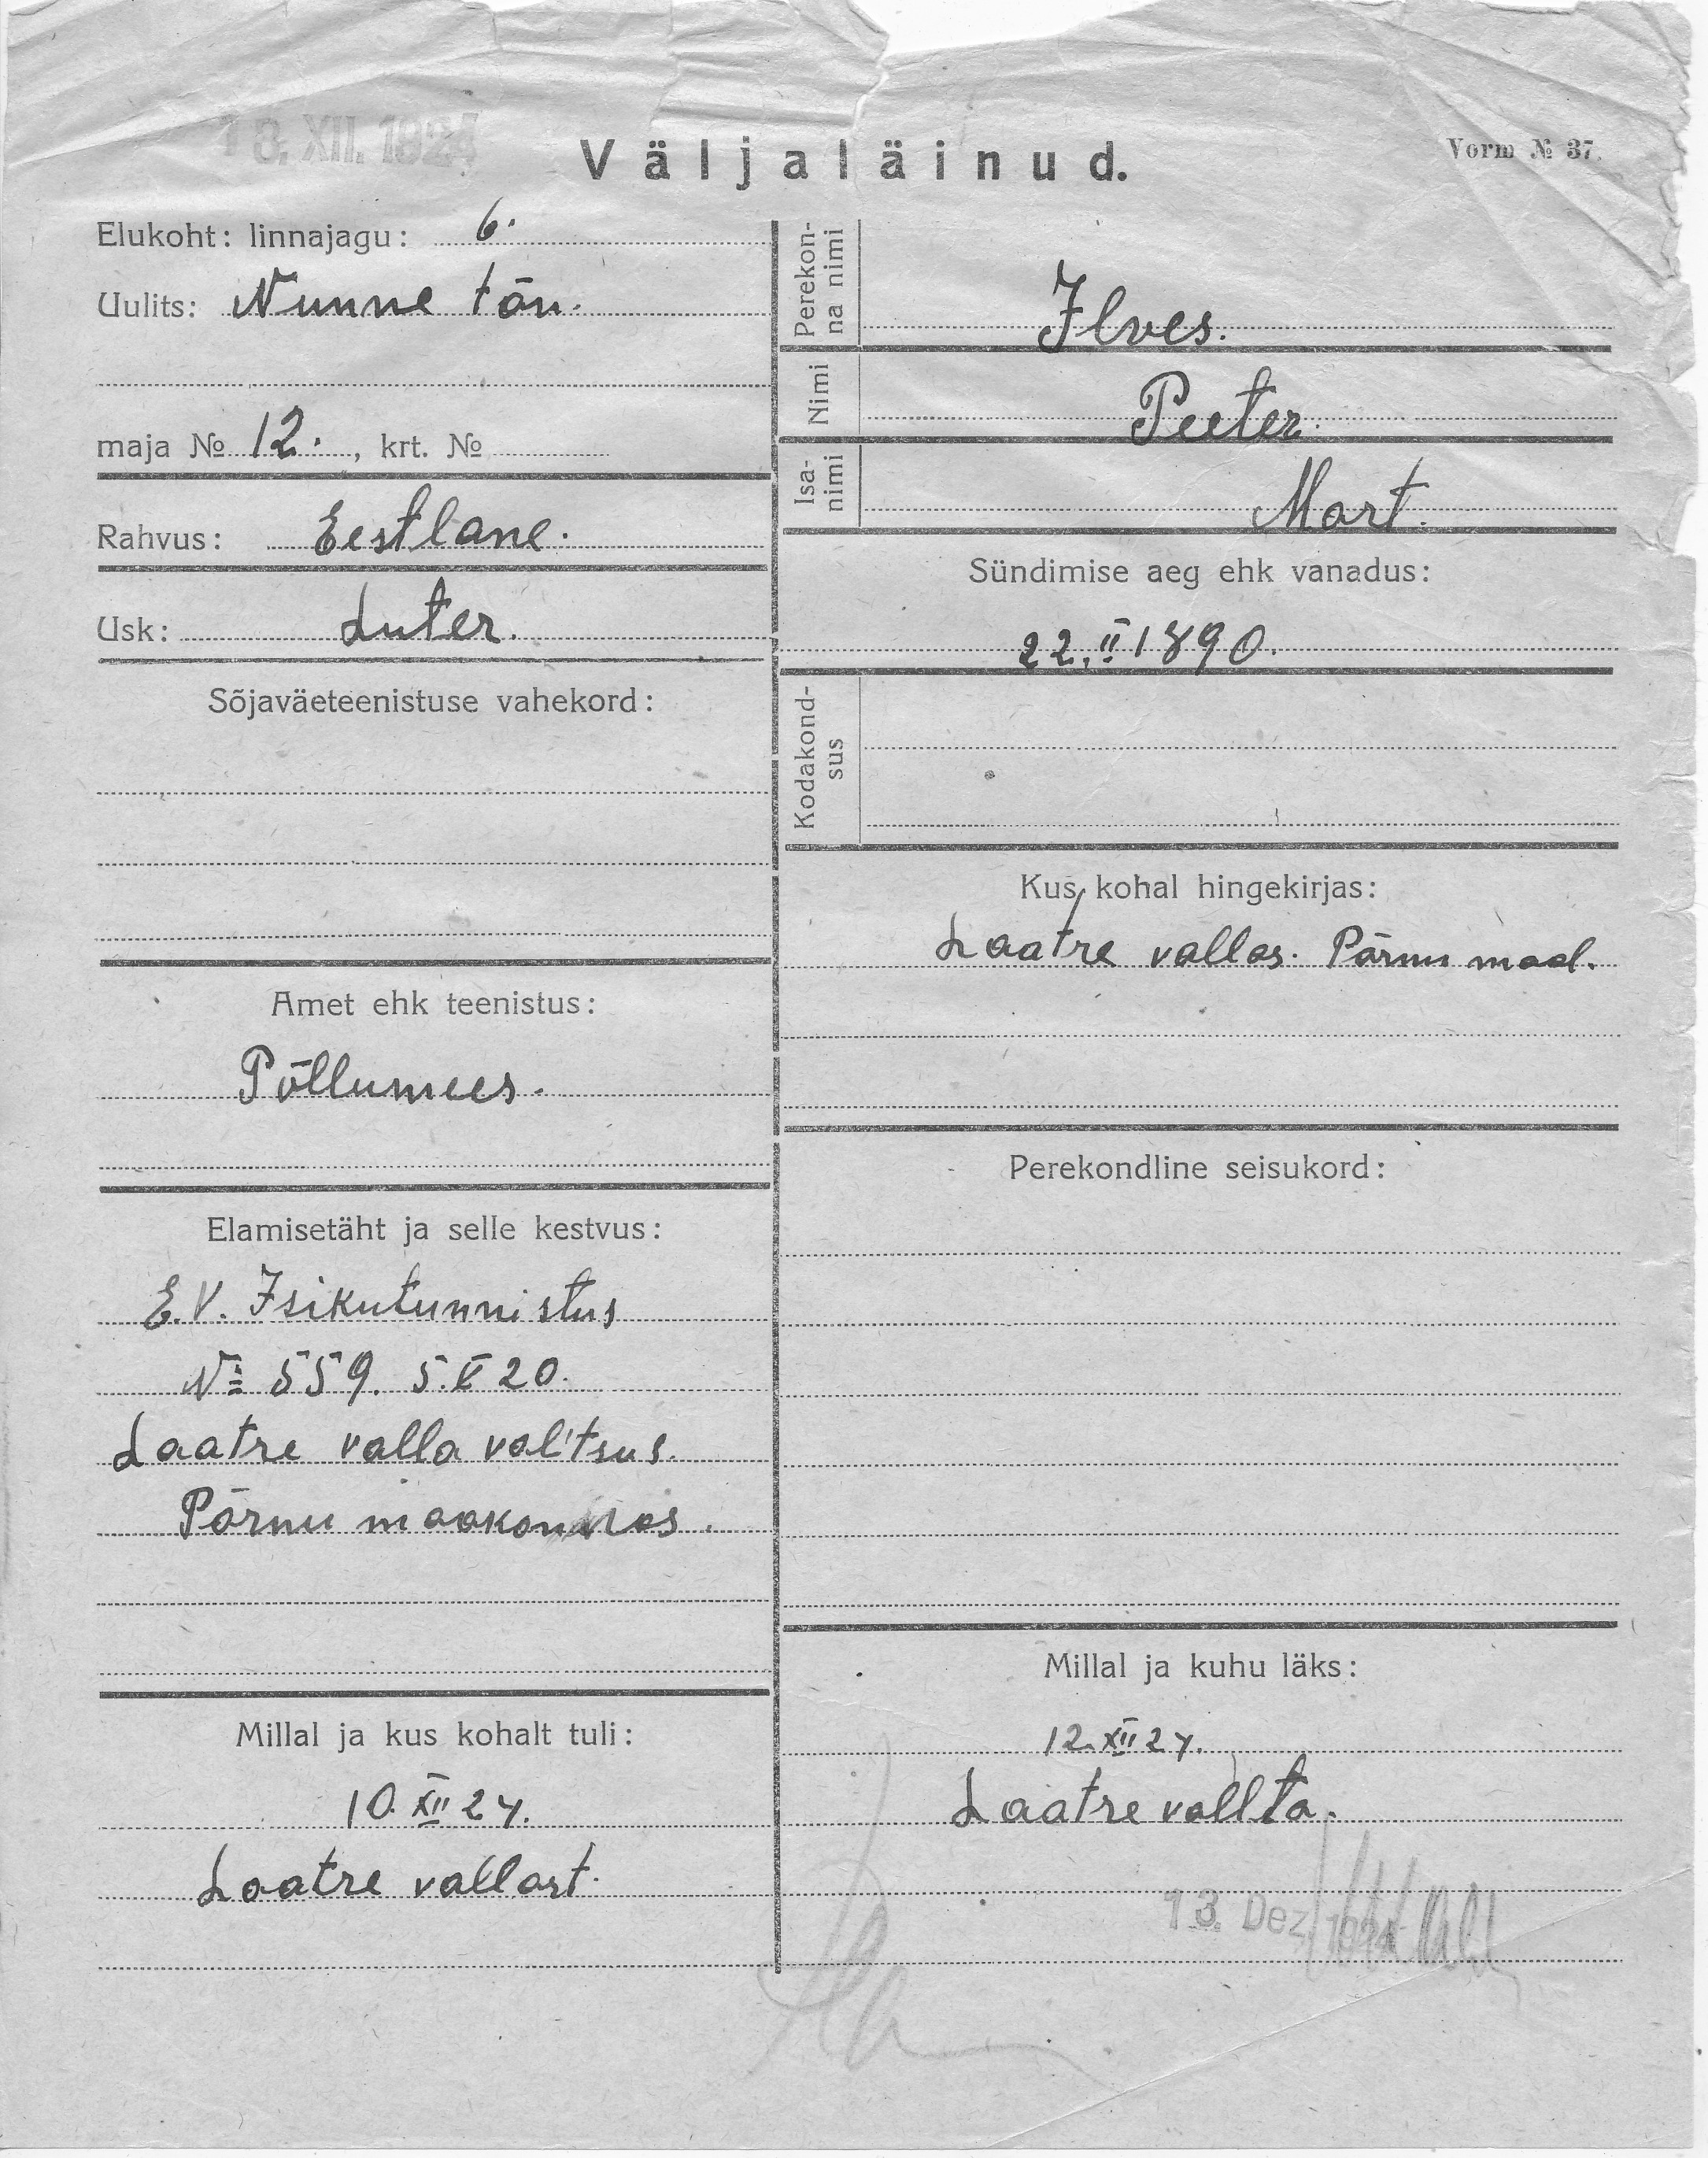 18. XII. 1924
Väljaläinud.
Vorm № 37.
Elukoht: linnajagu: 6.
Uulits: Nunne tän.
maja № 12., krt. №
Rahvus: Eestlane.
Usk: Luter.
Sõjaväeteenistuse vahekord:
Amet ehk teenistus:
Põllumees.
Elamisetäht ja selle kestvus:
E.V. Isikutunnistus
№ 559. 5.V 20.
Laatre valla valitsus.
Pärnu maakonnas.
Millal ja kus kohalt tuli:
10. XII 24.
Laatre vallast.
Perekon-
na nimi
Ilves.
Nimi
Peeter.
Isa-
nimi
Mart.
Sündimise aeg ehk vanadus:
22. II 1890.
Kodakond-
sus
Kus kohal hingekirjas:
Laatre vallas. Pärnu maal.
Perekondline seisukord:
Millal ja kuhu läks:
12. XII 24.
Laatre vallta.
13. Dez. 1924